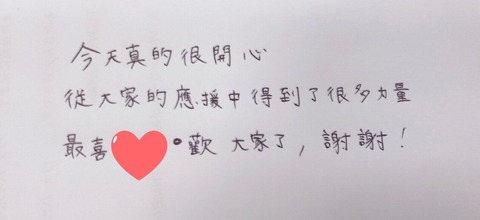 今天真的很開心
從大家的應援中得到了很多力量
最喜歡 大家了，謝謝！